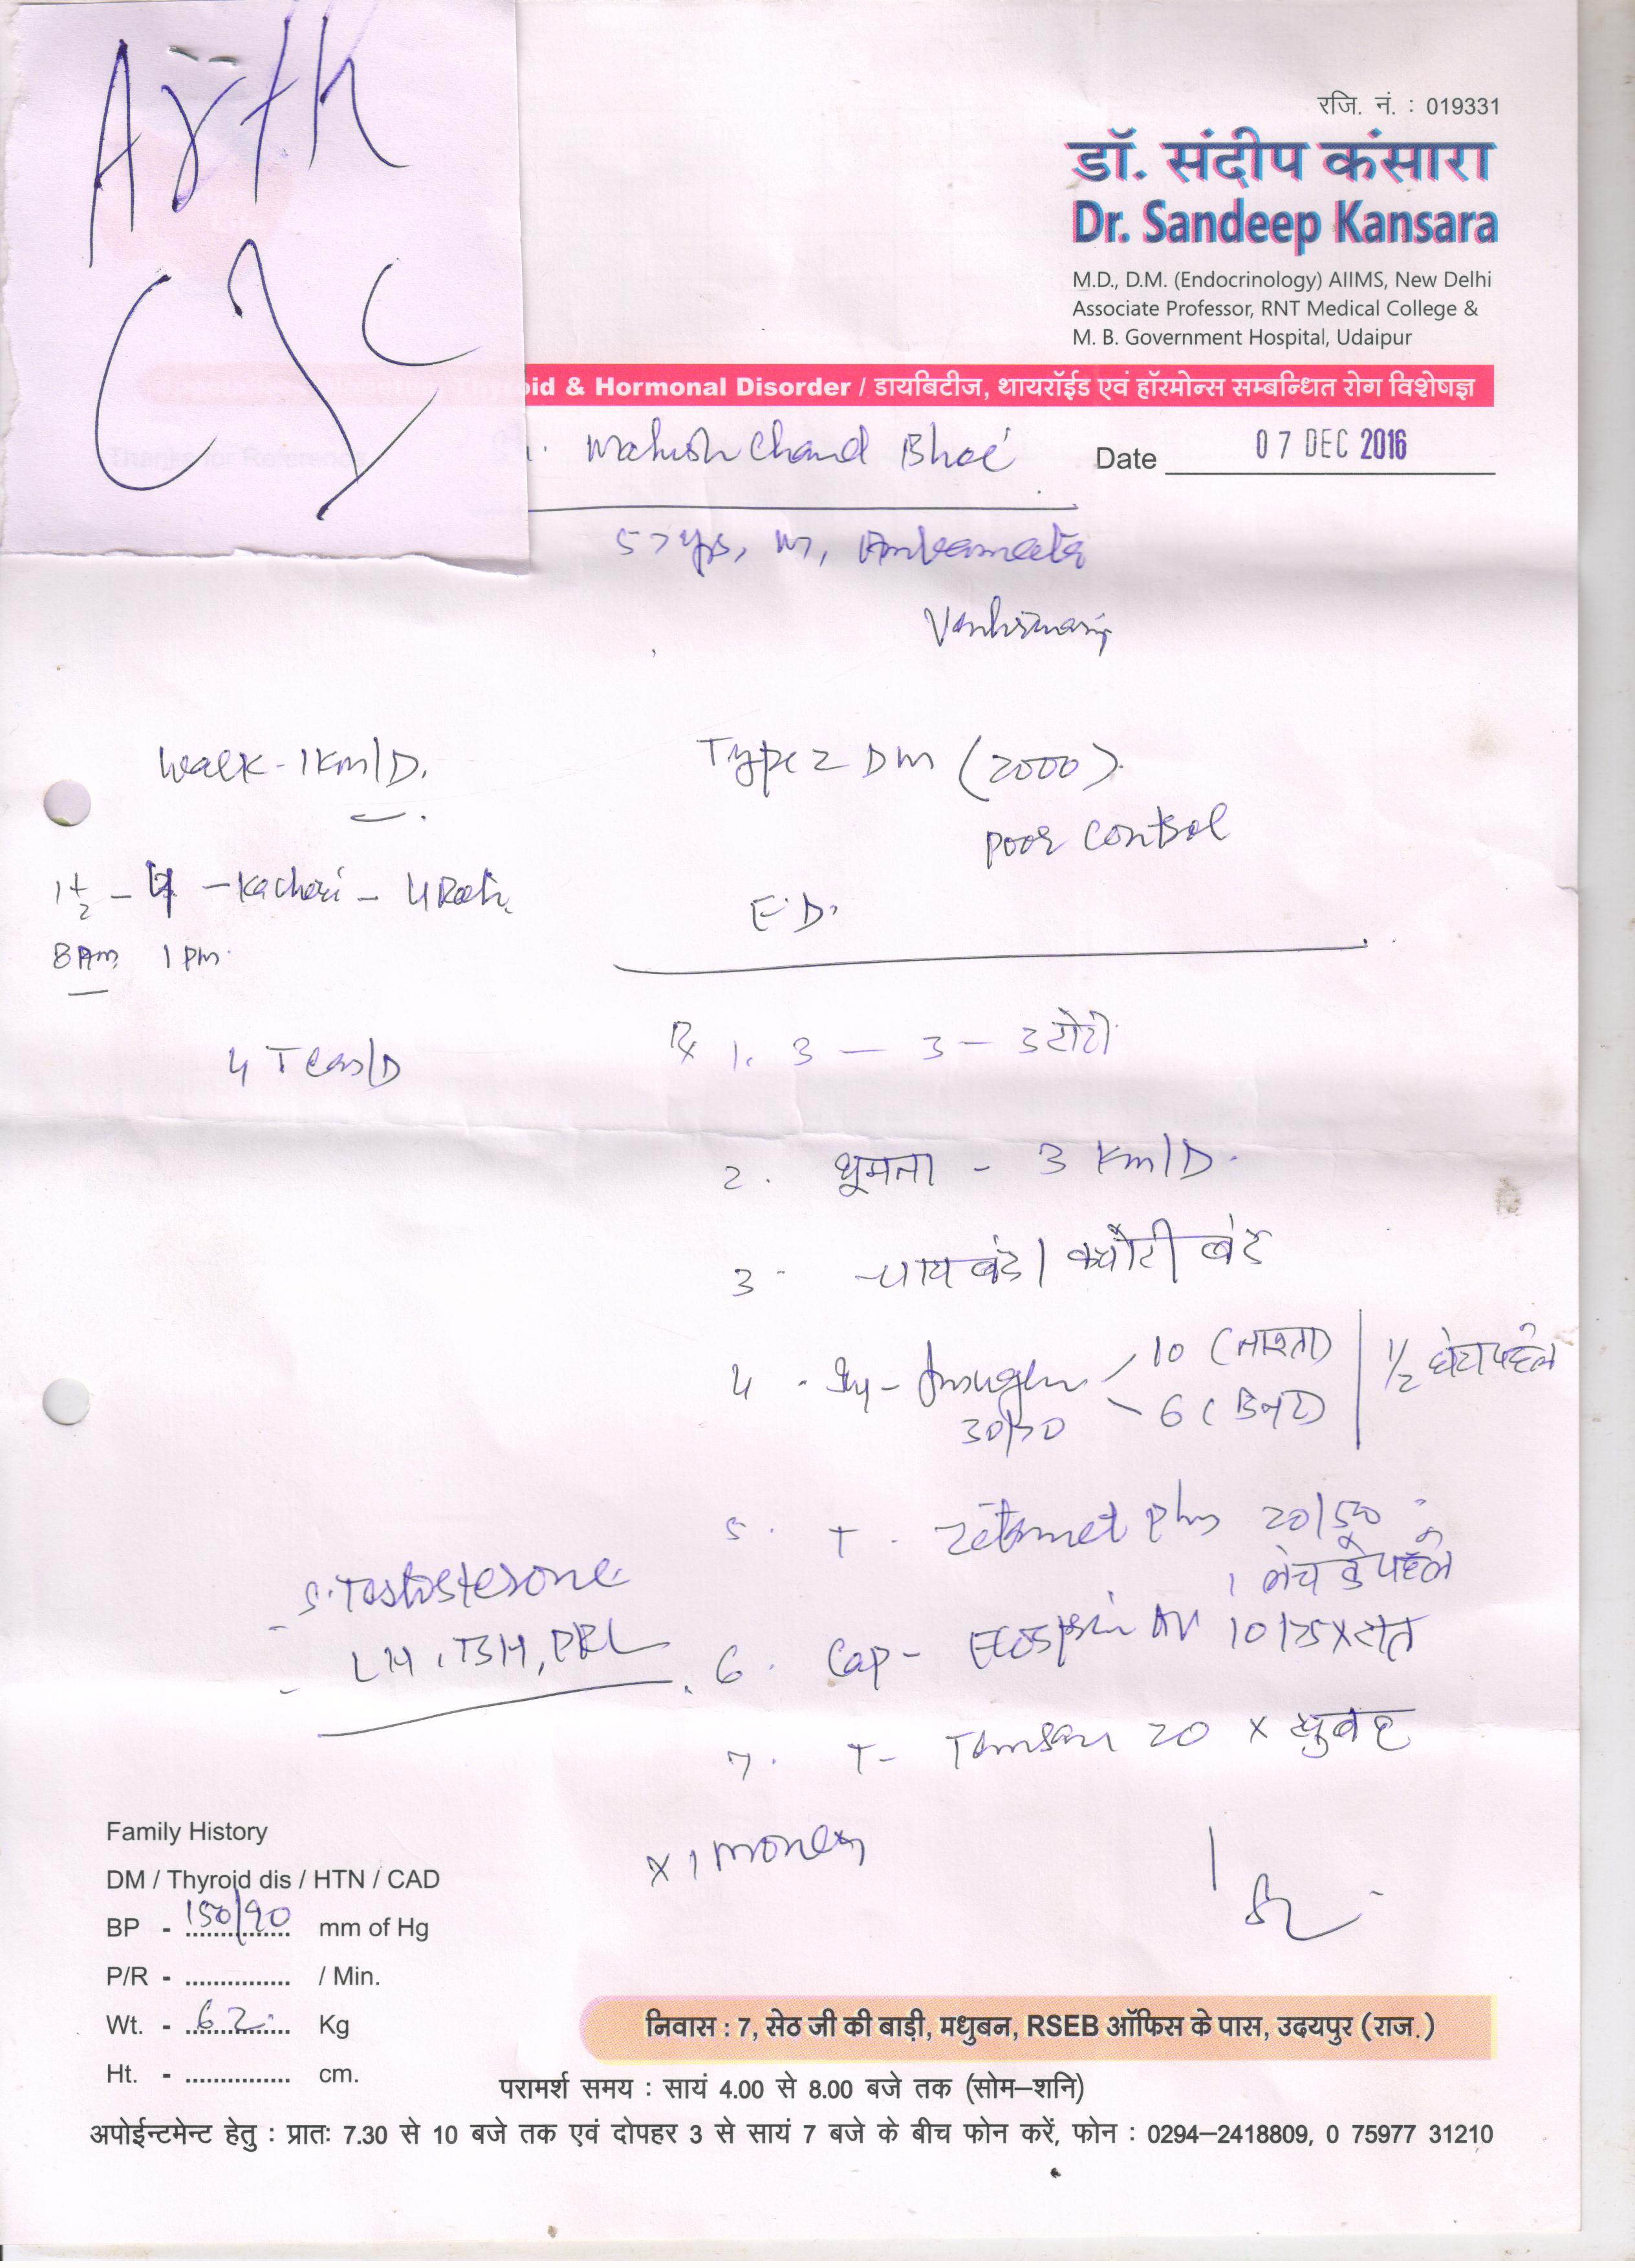 Arth
रजि. नं. : 019331
डॉ. संदीप कंसारा
Dr. Sandeep Kansara
M.D., D.M. (Endocrinology) AIIMS, New Delhi
Associate Professor, RNT Medical College &
M. B. Government Hospital, Udaipur
& Hormonal Disorder / डायबिटीज, थायरॉईड एवं हॉरमोन्स सम्बन्धित रोग विशेषज्ञ
Thanks for Reference
Chand Date 07 DEC 2016
57 yrs, M,
Walk - 1 Km/D. Type 2 DM (2000)
Poor Control
1 1/2 - 4 - Kachori - 4 Roti
E.D.
8 Am 1 Pm
4 Teas/D
Rx 1. 3 - 3 - 3 रोटी
2. घूमना - 3 Km/D.
3. चाय बंद / कचौरी बंद
4. Inj - Insugen 10 (नाश्ता) 1/2 घंटा पहले
30/70 6 (डिनर)
5. T. Zitamet Plus 20/500
1 लंच के पहले
S. Testosterone
LH, TSH, PRL
6. Cap - Ecosprin AV 10/75 x रात
7. T - 20 x सुबह
x 1 month
Family History
DM / Thyroid dis / HTN / CAD
BP - 150/90 mm of Hg
P/R - ............... / Min.
Wt. - 62 Kg
Ht. - ............... cm.
निवास : 7, सेठ जी की बाड़ी, मधुबन, RSEB ऑफिस के पास, उदयपुर (राज.)
परामर्श समय : सायं 4.00 से 8.00 बजे तक (सोम–शनि)
अपोईन्टमेन्ट हेतु : प्रातः 7.30 से 10 बजे तक एवं दोपहर 3 से सायं 7 बजे के बीच फोन करें, फोन : 0294–2418809, 0 75977 31210